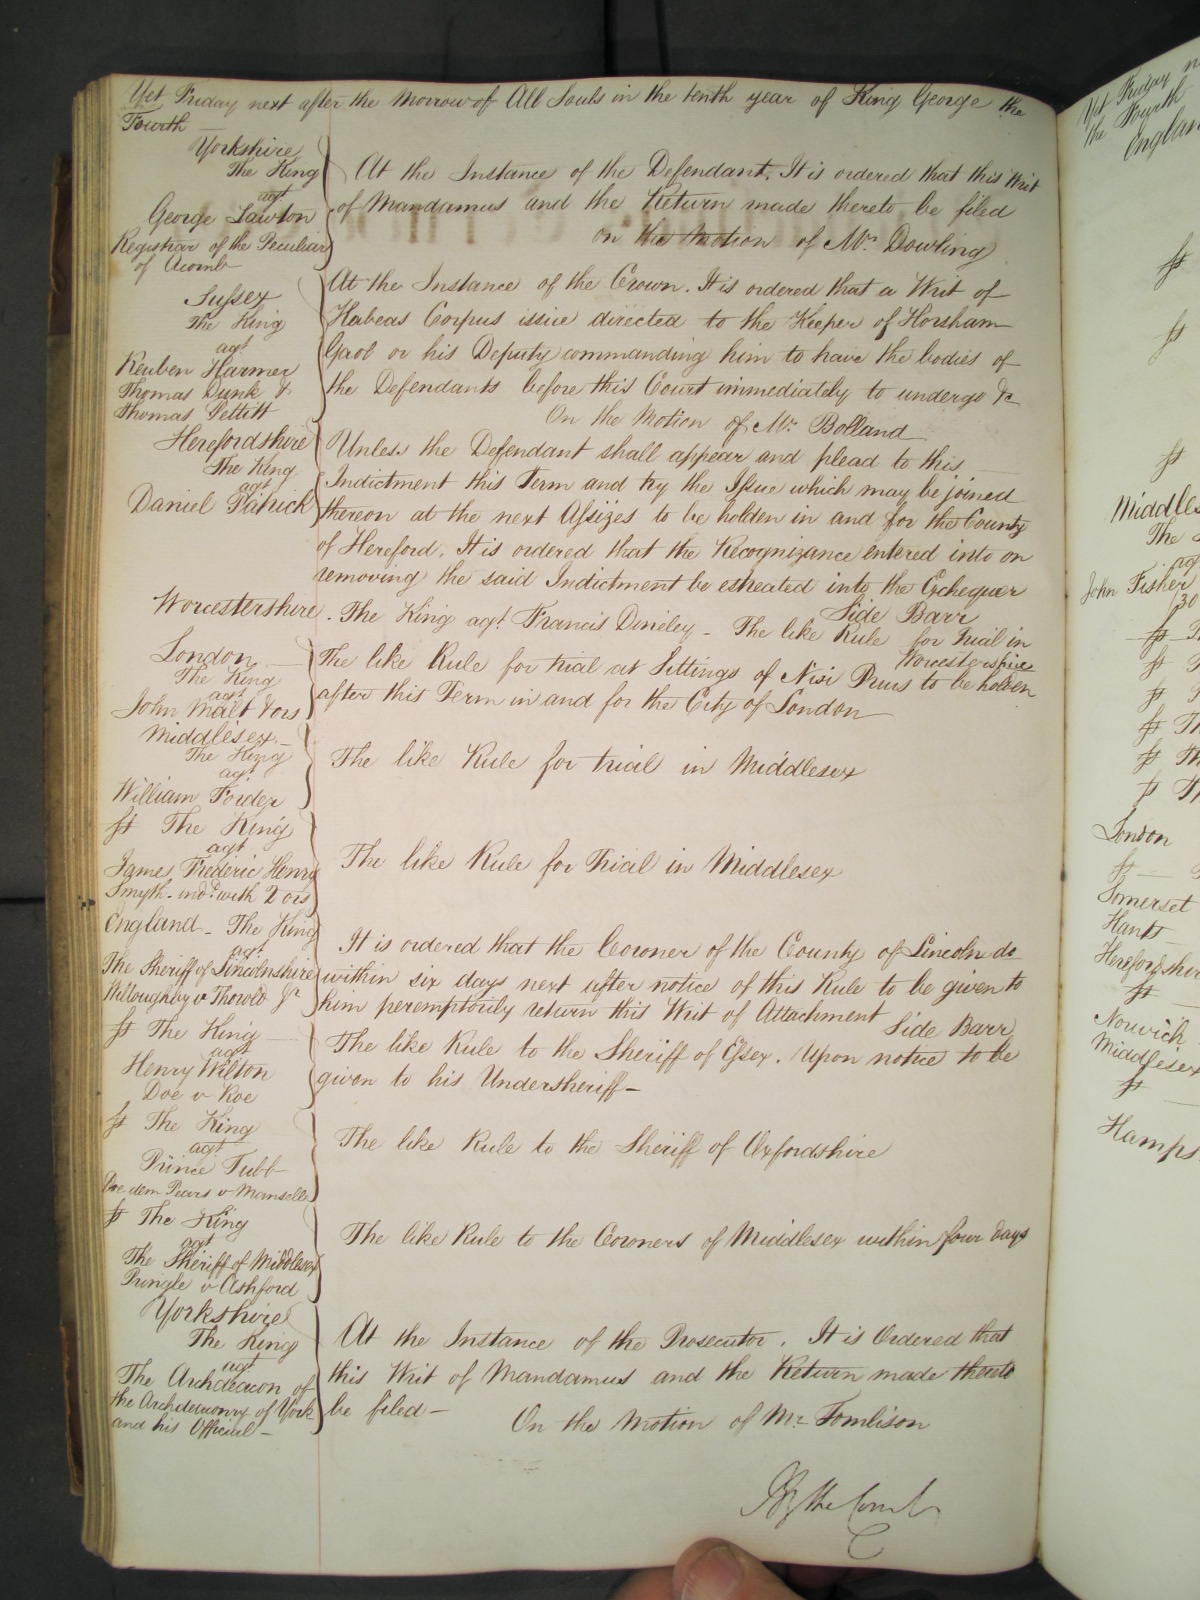 Yet Friday next after the Morrow of All Souls in the tenth year of King George the
Fourth
Yorkshire
The King
agt
George Lawton
Registrar of the Peculiar
of Acomb
At the Instance of the Defendant. It is ordered that this Writ
of Mandamus and the Return made thereto be filed
on the Motion of Mr. Dowling
Sussex
The King
agt
Reuben Harmer
Thomas Dunk &
Thomas Pettitt
At the Instance of the Crown. It is ordered that a Writ of
Habeas Corpus issue directed to the Keeper of Horsham
Gaol or his Deputy commanding him to have the bodies of
the Defendants before this Court immediately to undergo &c
On the Motion of Mr. Bolland
Herefordshire
The King
agt
Daniel Patrick
Unless the Defendant shall appear and plead to this
Indictment this Term and try the Issue which may be joined
thereon at the next Assizes to be holden in and for the County
of Hereford. It is ordered that the Recognizance entered into on
removing the said Indictment be estreated into the Exchequer
Side Barr
Worcestershire. The King agt. Francis Dineley - The like Rule for Trial in
Worcestershire
London
The King
agt
John Malt & ors
The like Rule for trial at Sittings of Nisi Prius to be holden
after this Term in and for the City of London
Middlesex
The King
agt
William Forder
The like Rule for trial in Middlesex
St The King
agt
James Frederic Henry
Smyth ind. with 2 ors
The like Rule for Trial in Middlesex
England - The King
agt
The Sheriff of Lincolnshire
Willoughby v Thorold Jr
It is ordered that the Coroner of the County of Lincoln do
within six days next after notice of this Rule to be given to
him peremptorily return this Writ of Attachment
Side Barr
St The King
agt
Henry Wilton
Doe v Roe
The like Rule to the Sheriff of Essex. Upon notice to be
given to his Undersheriff -
St The King
agt
Prince Tubb
Doe dem Pears v Mansell
The like Rule to the Sheriff of Oxfordshire
St The King
agt
The Sheriff of Middlesex
Pringle v Ashford
The like Rule to the Coroners of Middlesex within four days
Yorkshire
The King
agt
The Archdeacon of
the Archdeaconry of York
and his Official -
At the Instance of the Prosecutor. It is Ordered that
this Writ of Mandamus and the Return made thereto
be filed -
On the Motion of Mr. Tomlison
By the Court
Yet Friday
the Fourth
England
St
St
St
Middles
The
agt
John Fisher
St
St
St
St
St
St
London
St
Somerset
Hants
Herefordshire
St
Norwich
Middlesex
St
Hamps